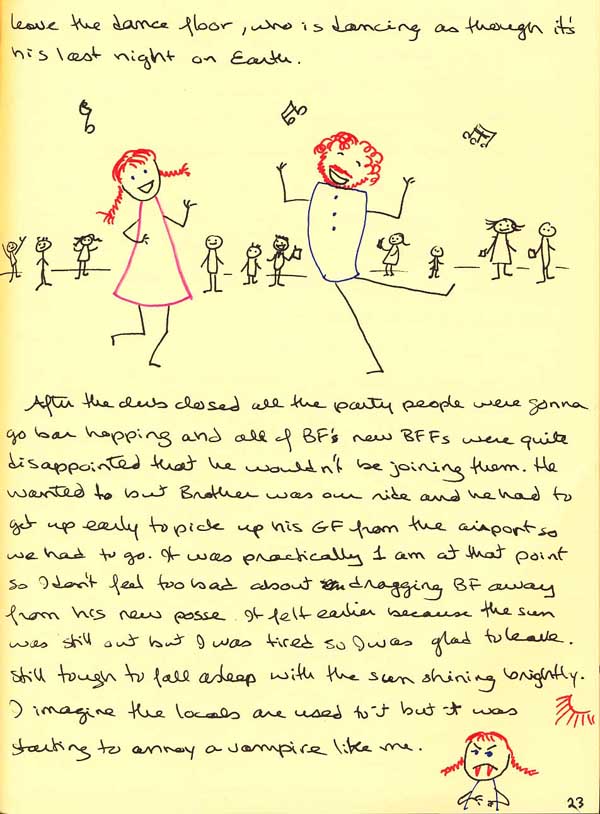 leave the dance floor, who is dancing as though it's
his last night on Earth.
After the club closed all the party people were gonna
go bar hopping and all of BF's new BFFs were quite
disappointed that he wouldn't be joining them. He
wanted to but Brother was our ride and he had to
get up early to pick up his GF from the airport so
we had to go. It was practically 1 am at that point
so I don't feel too bad about dragging BF away
from his new posse. It felt earlier because the sun
was still out but I was tired so I was glad to leave.
Still tough to fall asleep with the sun shining brightly.
I imagine the locals are used to it but it was
starting to annoy a vampire like me.
23